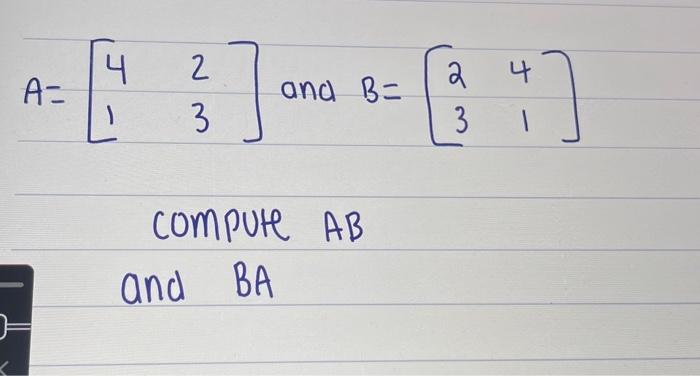 A= [4 2 and B= [2 4
1 3] 3 1]
compute AB
and BA